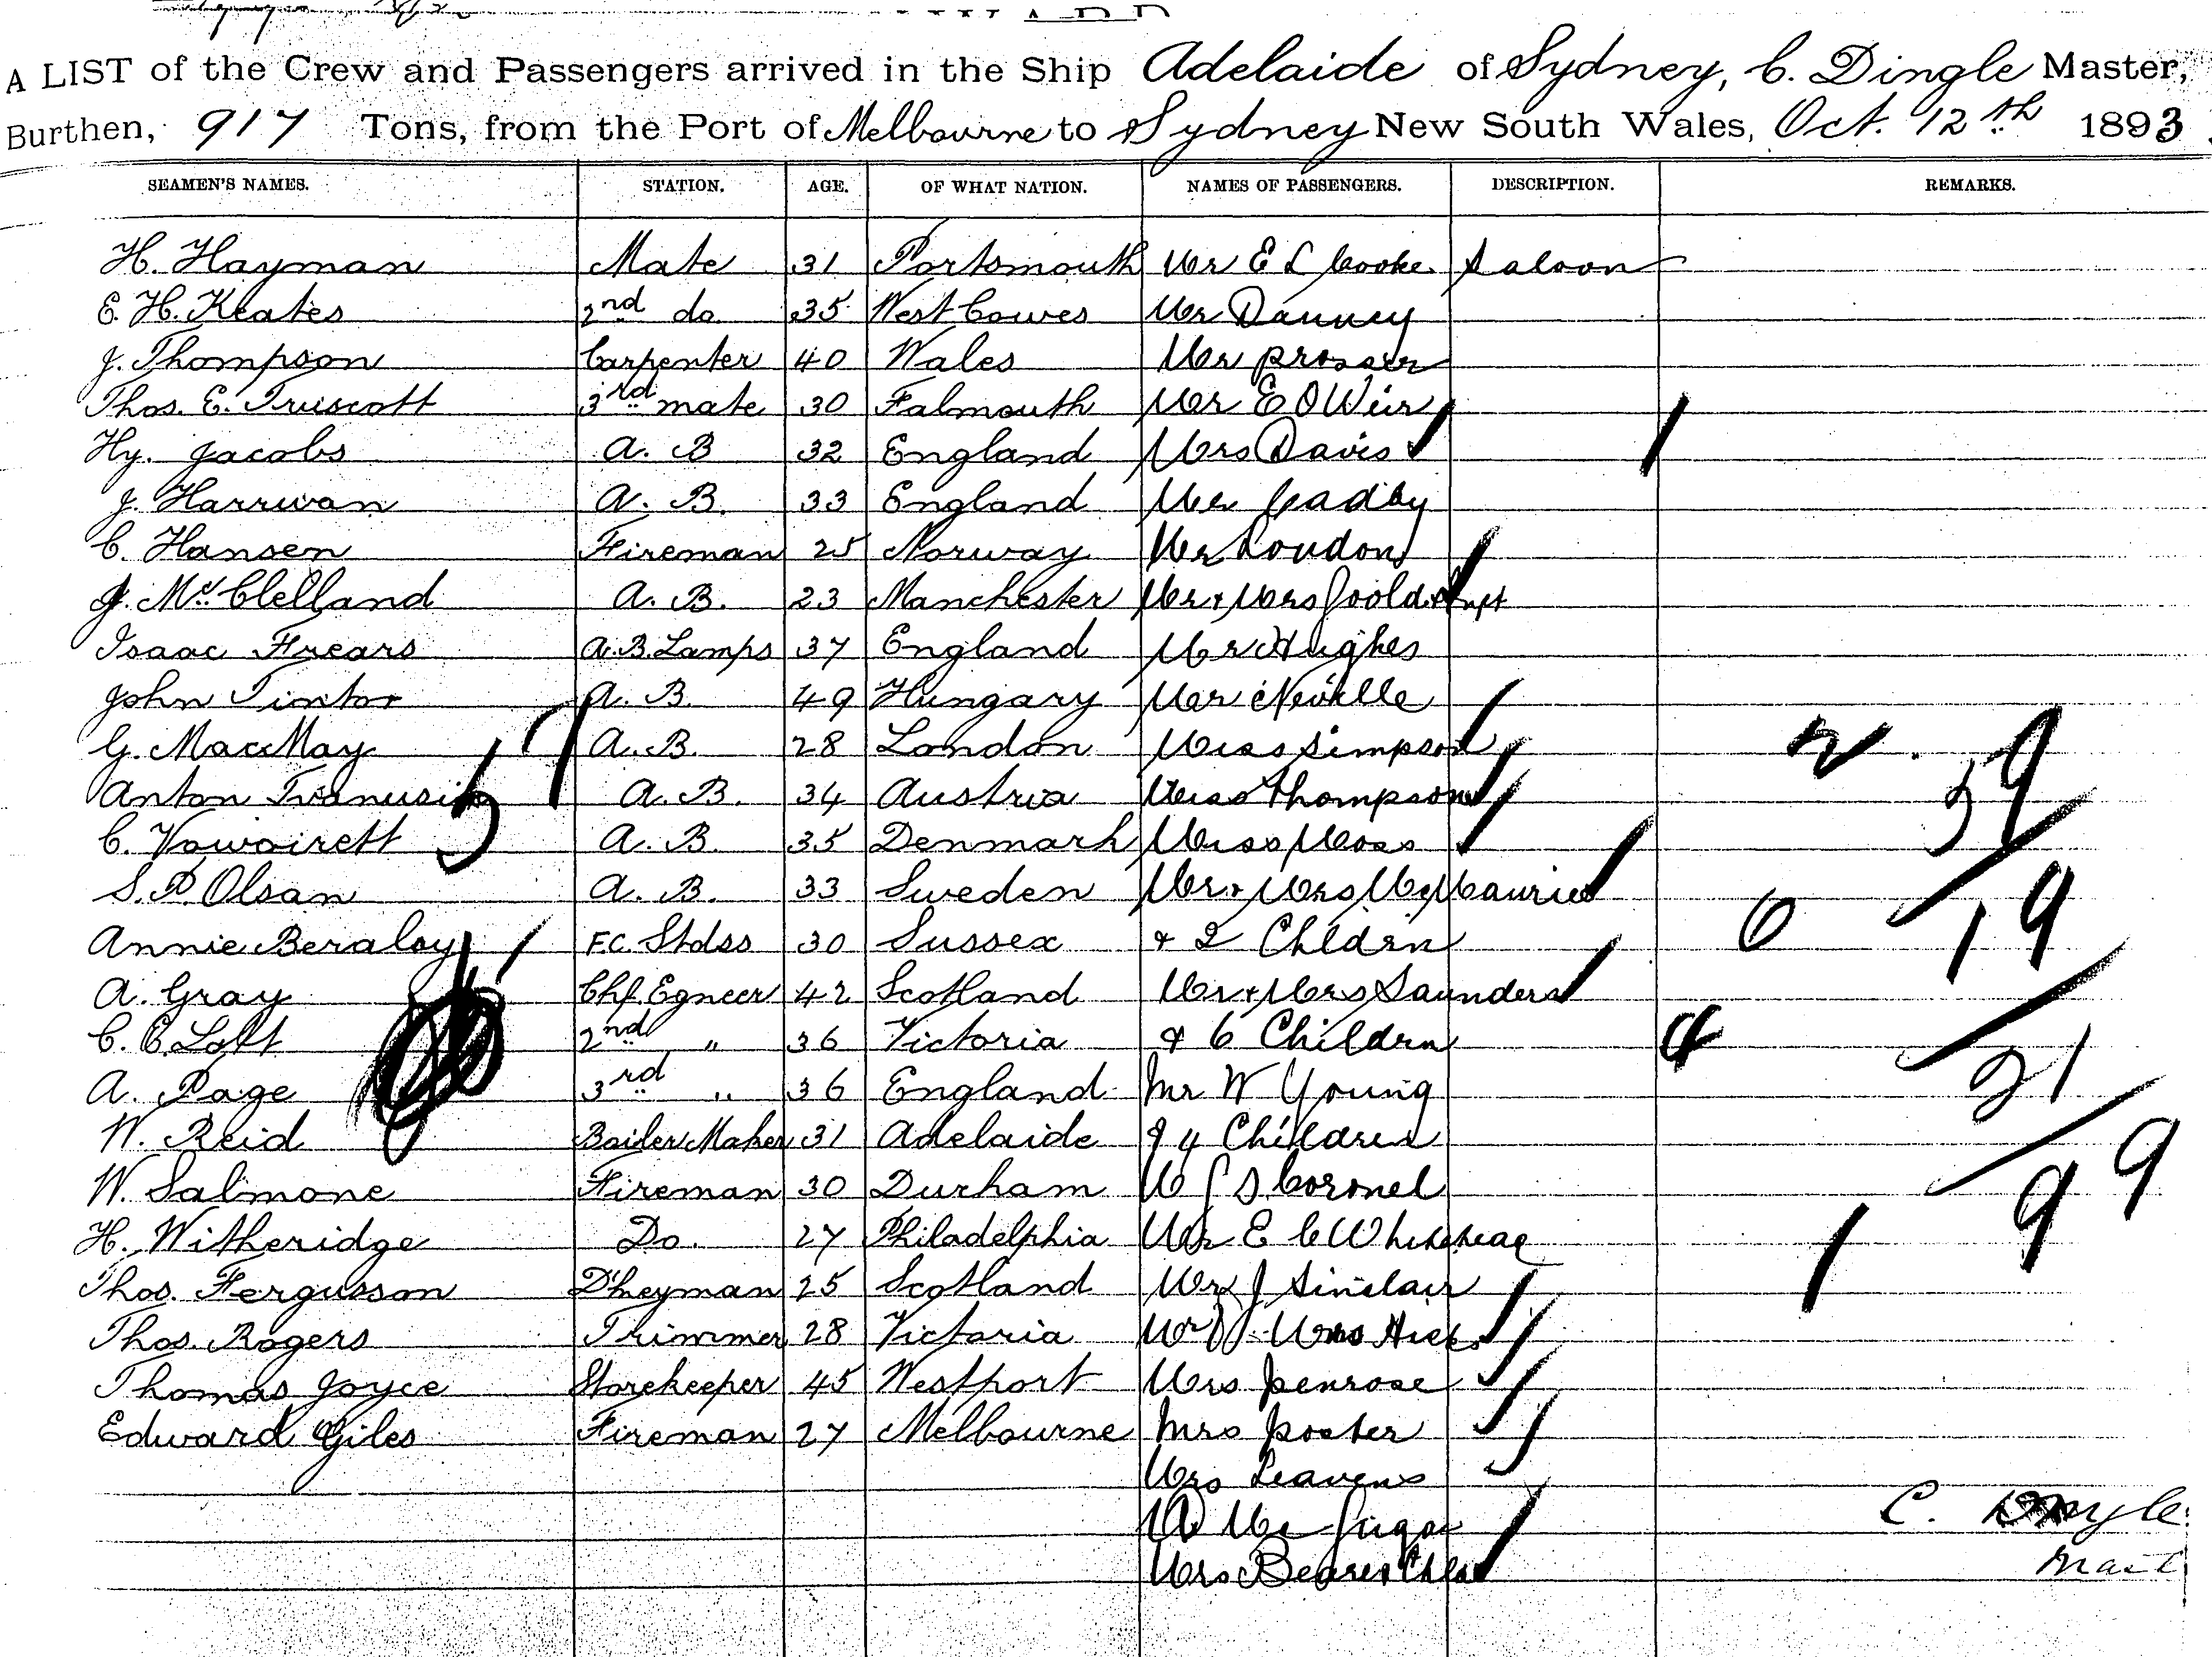 A LIST of the Crew and Passengers arrived in the Ship Adelaide of Sydney, C. Dingle Master,
Burthen, 917 Tons, from the Port of Melbourne to Sydney New South Wales, Oct. 12th 1893
SEAMEN'S NAMES. STATION. AGE. OF WHAT NATION. NAMES OF PASSENGERS. DESCRIPTION. REMARKS.
H. Hayman Mate 31 Portsmouth Mr E L Cooke Saloon
E. H. Keates 2nd do 35 West Cowes Mr Danney
J. Thompson Carpenter 40 Wales Mr Prosser
Thos. E. Truscott 3rd mate 30 Falmouth Mr E O Weir
Hy. Jacobs A. B 32 England Mrs Davis
J. Harrwan A. B. 33 England Mr Cadby
C. Hansen Fireman 25 Norway Mr Loudon
J. Mc Clelland A. B. 23 Manchester Mr & Mrs
Isaac Frears A.B. Lamps 37 England Mr Hughes
John Tintor A. B. 49 Hungary Mr Neville
G. MacMay A. B. 28 London Miss Simpson
Anton A. B. 34 Austria Miss Thompson
C. A. B. 35 Denmark Miss Moss
S. P. Olsan A. B. 33 Sweden Mr & Mrs
Annie Beraloy F.C. Stdss 30 Sussex & 2 Chldrn
A. Gray Chf. Egneer 42 Scotland Mr & Mrs Saunders
C. C. Loft 2nd " 36 Victoria & 6 Childrn
A. Page 3rd " 36 England Mr W Young
W. Reid Boiler Maker 31 Adelaide & 4 Children
W. Salmone Fireman 30 Durham Coronel
H. Witheridge Do. 27 Philadelphia Mr E C
Thos. Fergusson D'keyman 25 Scotland Mr J Sinclair
Thos. Rogers Trimmer 28 Victoria Mrs Hicks
Thomas Joyce Storekeeper 45 Westport Mrs Penrose
Edward Giles Fireman 27 Melbourne Mrs Poster
Mrs Leavens
Mrs
39
19
21
99
C.